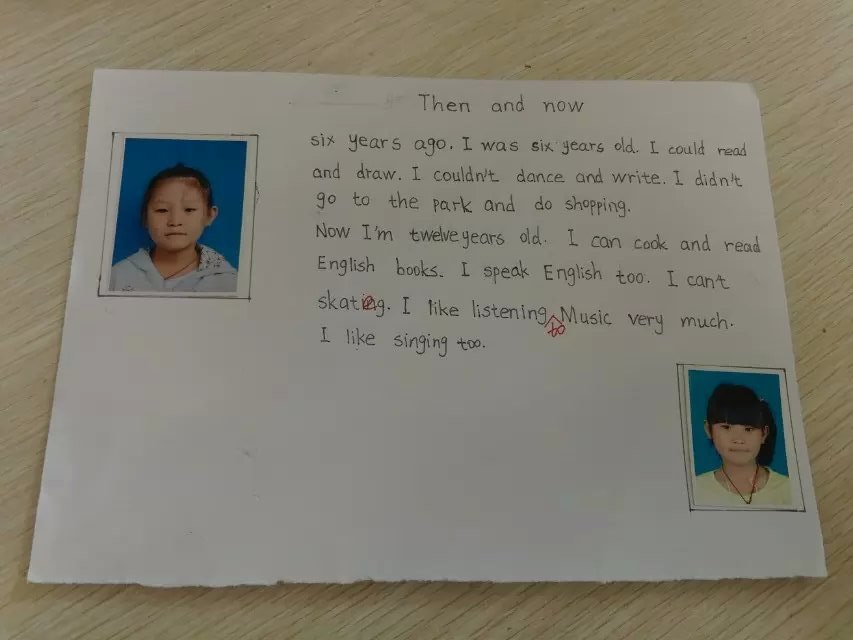 Then and now
six years ago. I was six years old. I could read
and draw. I couldn't dance and write. I didn't
go to the park and do shopping.
Now I'm twelve years old. I can cook and read
English books. I speak English too. I can't
skateg. I like listening to Music very much.
I like singing too.